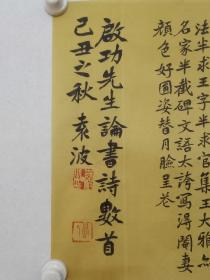 法半求王字半求官集王大雅亦
名家半截碑文語太誇寫得閹妻
顏色好圓姿替月臉呈花
啟功先生論書詩數首
己丑之秋 袁波